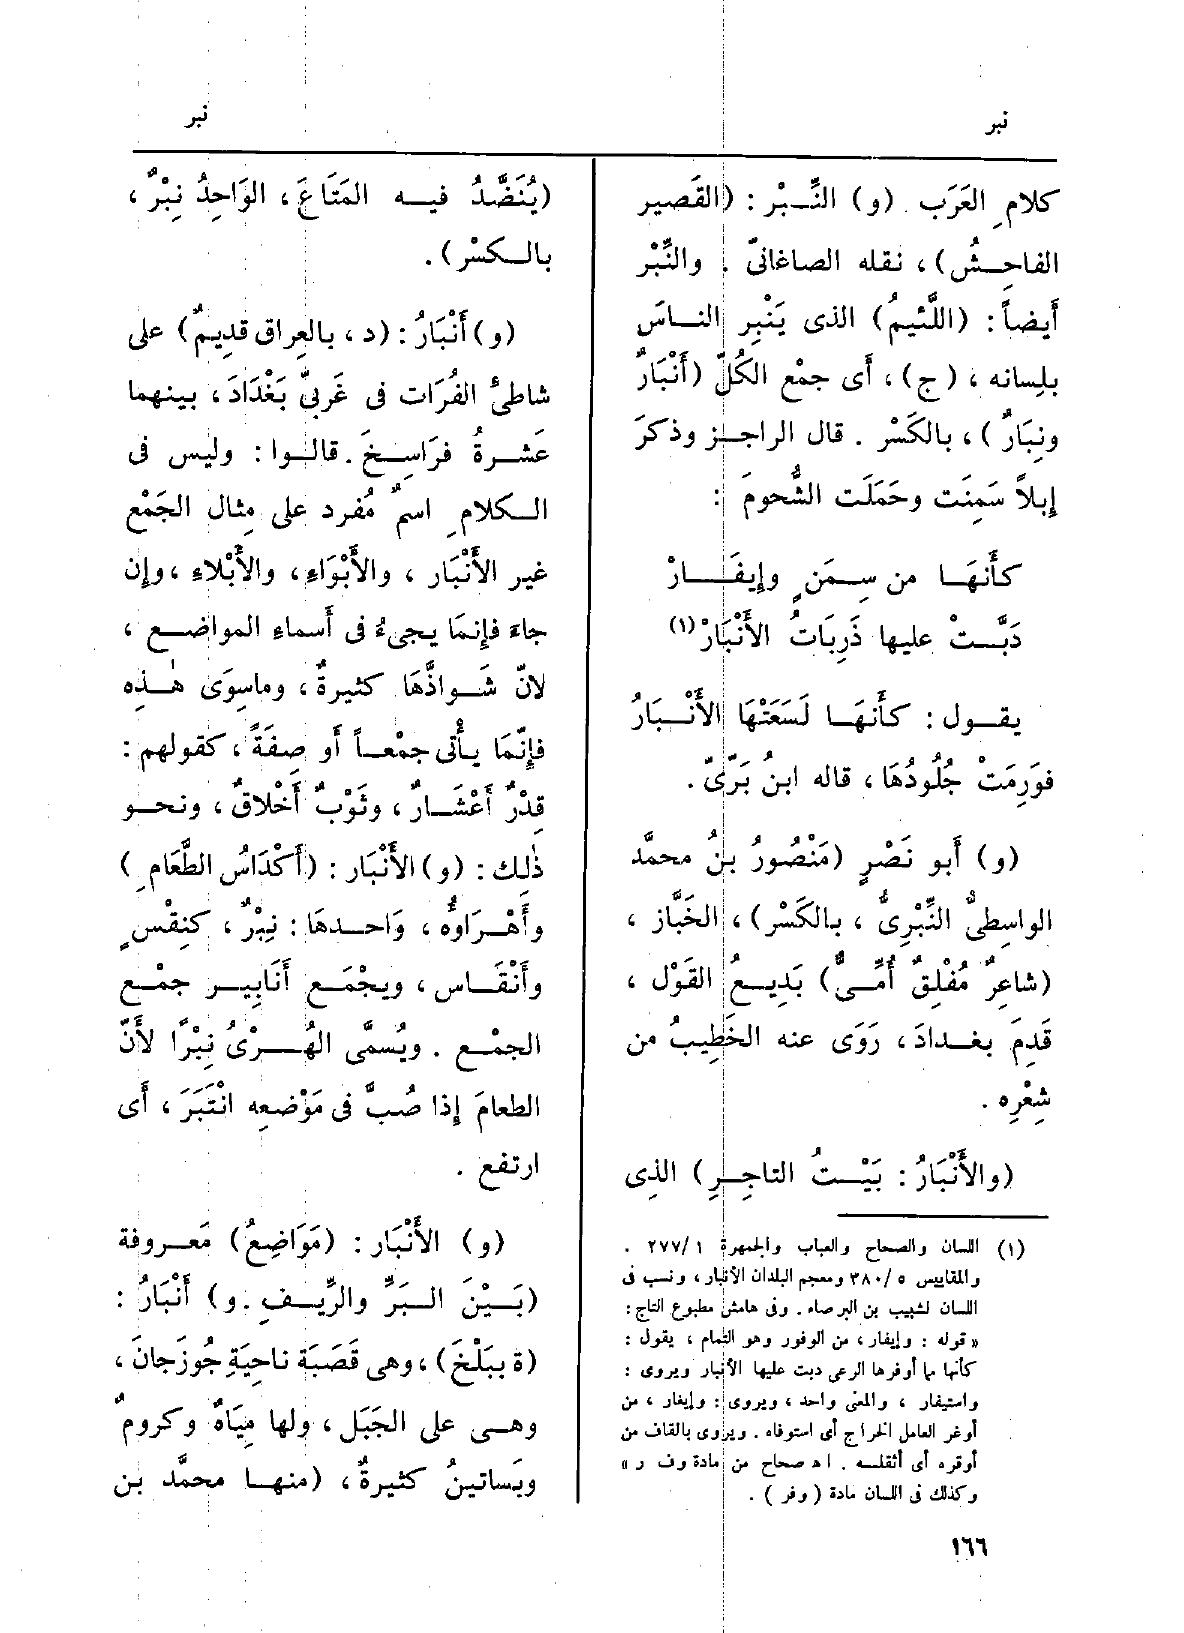 نبر
نبر
كلامِ العَرَب . (و) النِّبْر : (القَصير
الفاحِشُ) ، نقله الصاغانىّ . والنِّبْر
أيضاً : (اللَّئيمُ) الذى يَنْبِر الناسَ
بلِسانه ، (ج) ، أى جمْع الكُلّ (أَنْبَارٌ
ونِبَارٌ) ، بالكَسْر . قال الراجز وذكرَ
إبلاً سَمِنَت وحَمَلَت الشُّحومَ :
كأَنهَا من سِمَنٍ وإيفَارْ
دَبَّتْ عليها ذَرِبَاتُ الأَنْبَارْ(١)
يقول : كأَنهَا لَسَعَتْهَا الأَنْبَارُ
فوَرِمَتْ جُلُودُهَا ، قاله ابنُ بَرّىّ .
(و) أَبو نَصْرٍ (مَنْصُورُ بنُ محمَّد
الواسِطىُّ النِّبْرِىُّ ، بالكَسْر) ، الخَبَّاز ،
(شاعِرٌ مُفْلِقٌ أُمِّىٌّ) بَدِيعُ القَوْل ،
قَدِمَ بغدادَ ، رَوَى عنه الخَطِيبُ من
شِعْرِه .
(والأَنْبَارُ : بَيْتُ التاجِرِ) الذِى
(١) اللسان والصحاح والعباب والجمهرة ١/٢٧٧ .
والمقاييس ٥/٣٨٠ ومعجم البلدان الأنبار ، ونسب فى
اللسان لشبيب بن البرصاء . وفى هامش مطبوع التاج :
« قوله : وإيفار ، من الوفور وهو التمام ، يقول :
كأنها مما أوفرها الرعى دبت عليها الأنبار ويروى :
واستيفار ، والمعنى واحد ، ويروى : وإيغار ، من
أوغر العامل الخراج أى استوفاه . ويروى بالقاف من
أوقره أى أثقله . اه صحاح من مادة و ف ر »
وكذلك فى اللسان مادة (وفر) .
(يُنَضَّدُ فيه المَتَاعَ ، الوَاحِدُ نِبْرٌ ،
بالكسْر) .
(و) أَنْبَارُ : (د ، بالعِراق قديمٌ) على
شاطئ الفُرَات فى غَرْبِىِّ بَغْدَادَ ، بينهما
عَشرةُ فرَاسِخَ . قالوا : وليس فى
الكلامِ اسمٌ مُفرد على مِثال الجَمْع
غير الأَنْبَار ، والأَبْوَاءِ ، والأَبْلاءِ ، وإن
جاءَ فإِنمَا يجىءُ فى أَسماءِ المواضع ،
لانّ شَواذَّهَا كثيرةٌ ، وماسِوَى هٰذه
فإِنَّمَا يأْتى جمْعاً أَو صِفَةً ، كقولهم :
قِدْرٌ أَعْشَارٌ ، وثَوْبٌ أَخْلاقٌ ، ونحو
ذٰلك : (و) الأَنْبَار : (أَكْدَاسُ الطَّعَامِ)
وأَهْرَاوُه ، وَاحدهَا : نِبْرٌ ، كنِقْسٍ
وأَنْقَاس ، ويجْمَع أَنَابِير جمْع
الجمْع . ويُسمَّى الهُرْىُ نِبْرًا لأَنّ
الطعامَ إِذا صُبَّ فى مَوْضعِه انْتَبَرَ ، أَى
ارتفع .
(و) الأَنْبَار : (مَوَاضِعُ) مَعروفة
(بَيْنَ البَرِّ والرِّيف . و) أَنْبَارُ :
(ة ببَلْخَ) ، وهى قَصَبَة ناحِيَةِ جُوزجان ،
وهى على الجَبَل ، ولها مِيَاهٌ وكرومٌ
وبَساتينُ كثيرةٌ ، (منها محمَّد بن
١٦٦